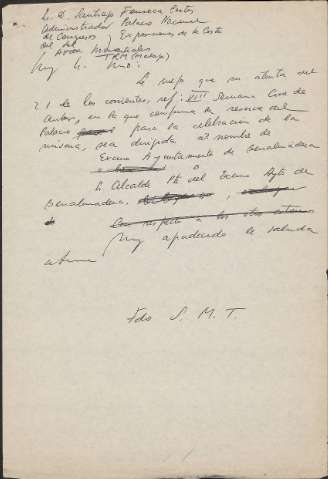 Sr. D. Santiago Fonseca Costas
Administrador Palacio Nacional
de Congresos y Exposiciones de la Costa
del Sol
Avda. Montemar
Muy Sr. mío:
Le ruego que su atenta del
21 de los corrientes, ref: XVII Semana Cine de
Autor, en la que confirma la reserva del
Palacio para la celebración de la
misma, sea dirigida al nombre de
Excmo Ayuntamiento de Benalmádena
o
Sr. Alcalde Pte del Excmo Ayto de
Benalmádena.
Con respecto a los otros
Muy agradecido le saluda
atmte
Fdo S. M. T.